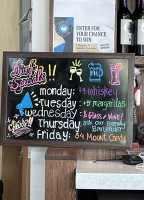 ENTER FOR
YOUR CHANCE
TO WIN
Drink
Specials!!
Cheers!
monday: $4 whiskey
tuesday: $5 margaritas
wednesday: $6 Glass of Wine!
Thursday: ask our friendly
Bartender!
Friday: $4 Mount Candy